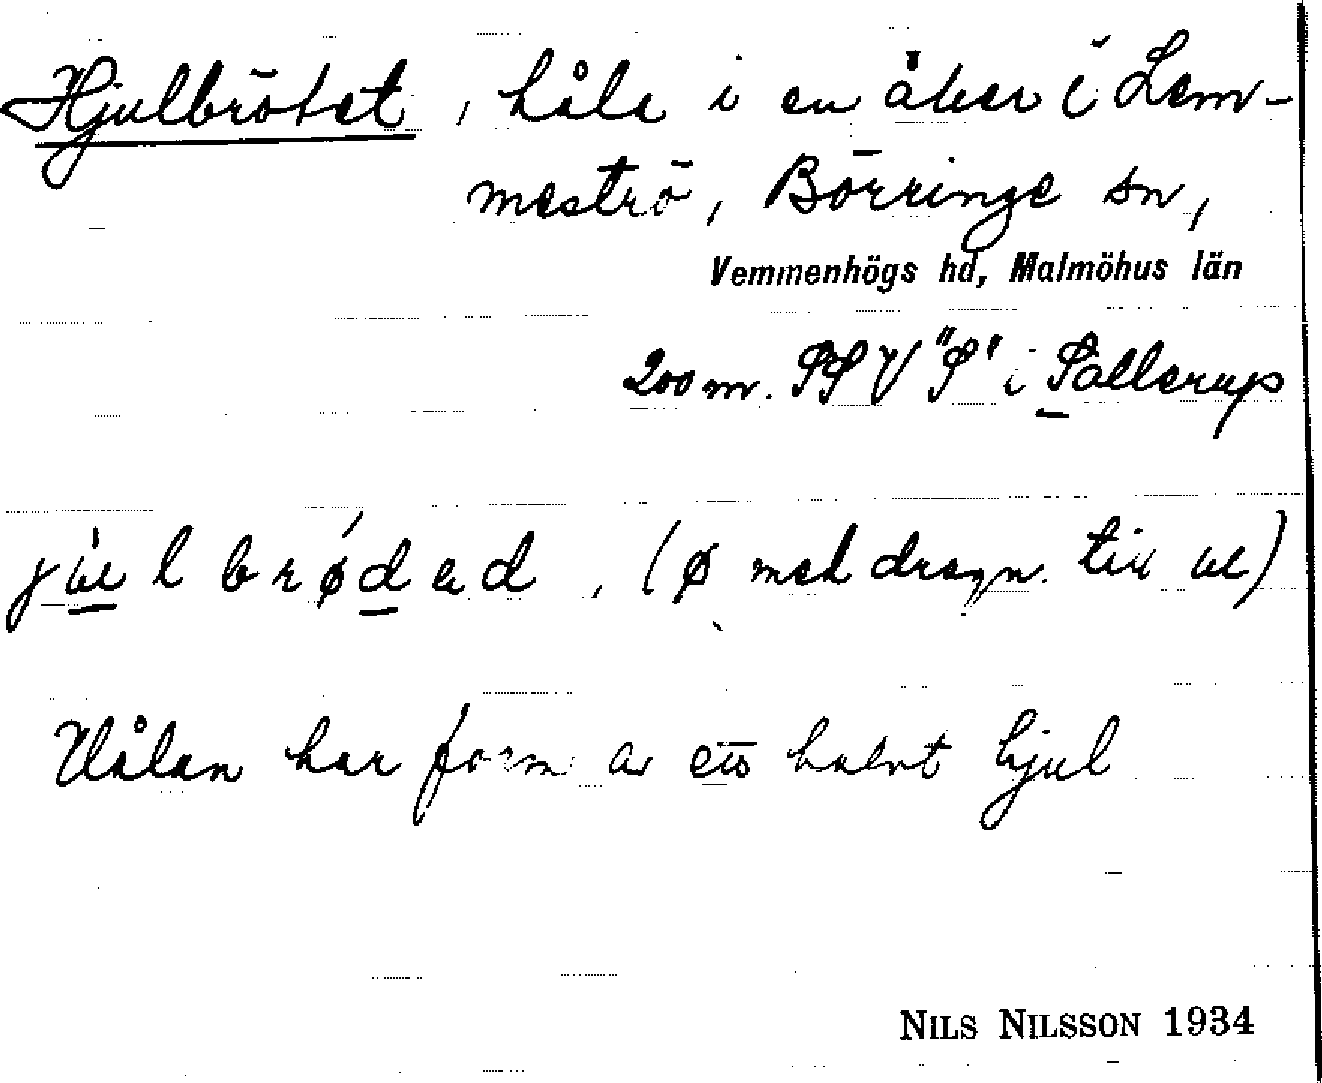 Hjulbrötet, håla i en åker i Lem-
meströ, Börringe sn,
Vemmenhögs hd, Malmöhus län
200 m. SSV "S" i Sallerup
j u l b r ø d a d, (ø med dragn. till u)
Hålan har form av ett halvt hjul
NILS NILSSON 1934